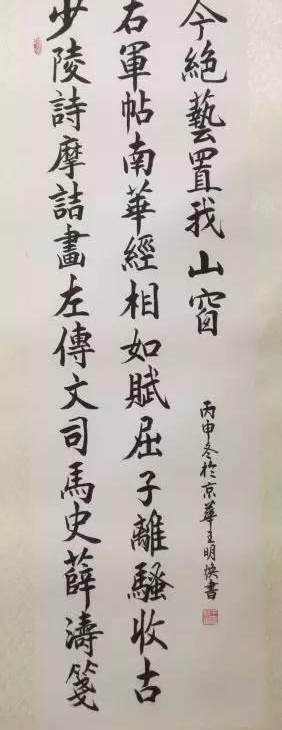 少陵詩摩詰畫左傳文司馬史薛濤箋
右軍帖南華經相如賦屈子離騷收古
今絶藝置我山窗
丙申冬於京華王明書